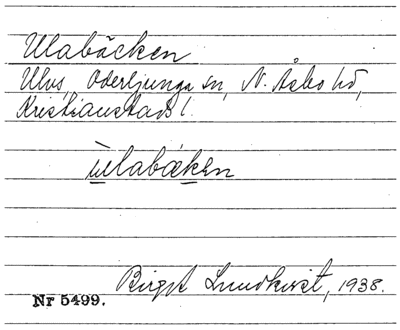 Ulabäcken
Ulvs, Oderljunga sn, N. Åsbo hd,
Kristianstads l.
ùlabäken
Birgit Lundkvist, 1938.
Nr 5499.